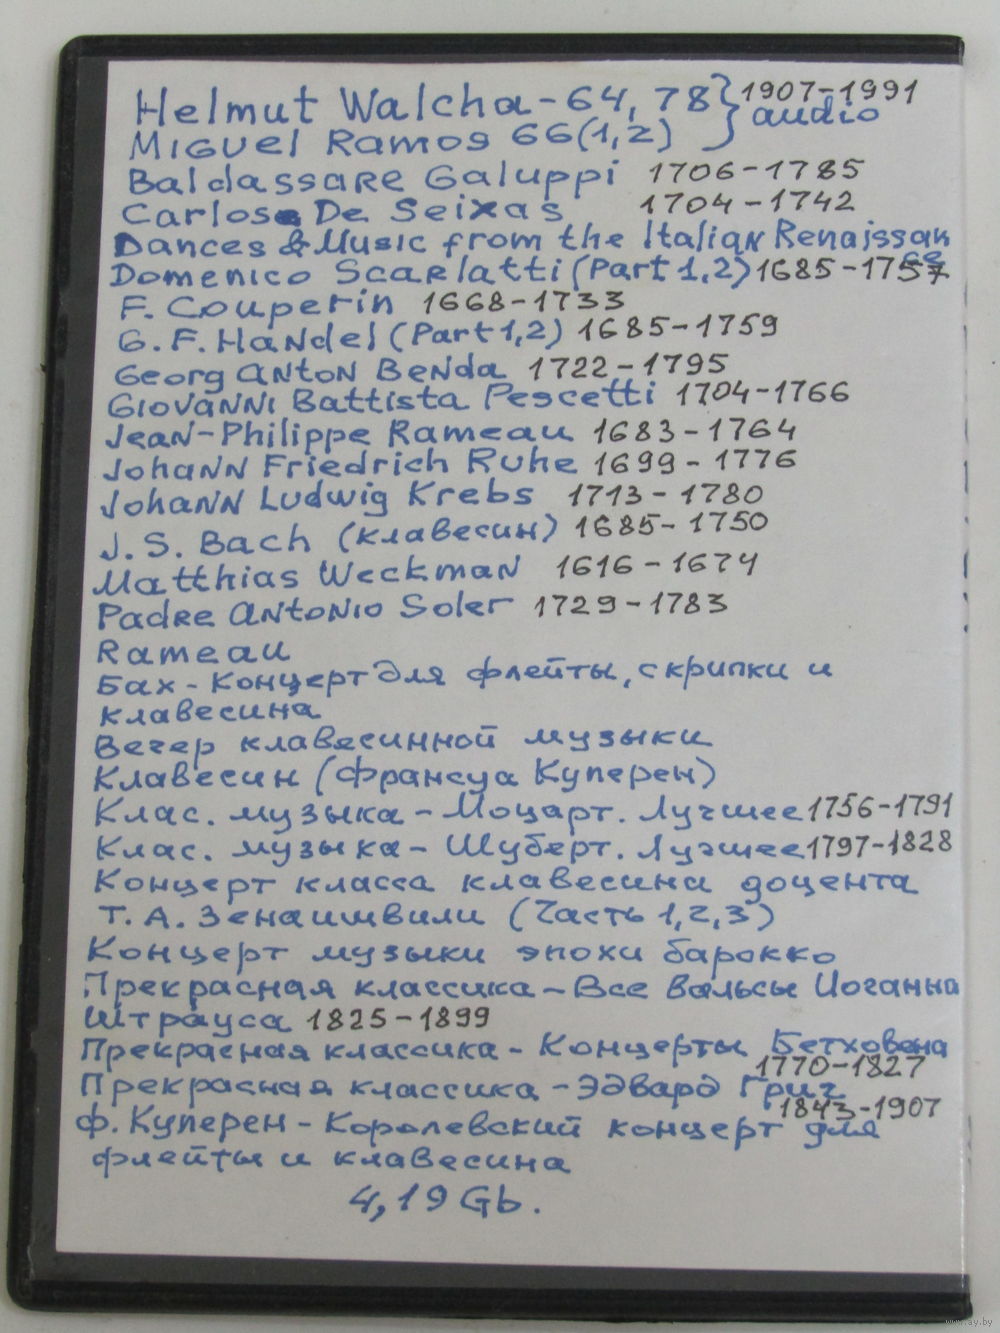 Helmut Walcha - 64, 78 } 1907-1991
Miguel Ramos 66(1,2) } audio
Baldassare Galuppi 1706-1785
Carlos De Seixas 1704-1742
Dances & Music from the Italian Renaissan
ce
Domenico Scarlatti (Part 1,2) 1685-1757
F. Couperin 1668-1733
G. F. Handel (Part 1,2) 1685-1759
Georg Anton Benda 1722-1795
Giovanni Battista Pescetti 1704-1766
Jean-Philippe Rameau 1683-1764
Johann Friedrich Ruhe 1699-1776
Johann Ludwig Krebs 1713-1780
J. S. Bach (клавесин) 1685-1750
Matthias Weckman 1616-1674
Padre Antonio Soler 1729-1783
Rameau
Бах - Концерт для флейты, скрипки и
клавесина
Вечер клавесинной музыки
Клавесин (Франсуа Куперен)
Клас. музыка - Моцарт. Лучшее 1756-1791
Клас. музыка - Шуберт. Лучшее 1797-1828
Концерт класса клавесина доцента
Т. А. Зенаишвили (Часть 1,2,3)
Концерт музыки эпохи барокко
Прекрасная классика - Все вальсы Иоганна
Штрауса 1825-1899
Прекрасная классика - Концерты Бетховена
1770-1827
Прекрасная классика - Эдвард Григ
1843-1907
Ф. Куперен - Королевский концерт для
флейты и клавесина
4,19 Gb.
www.ay.by